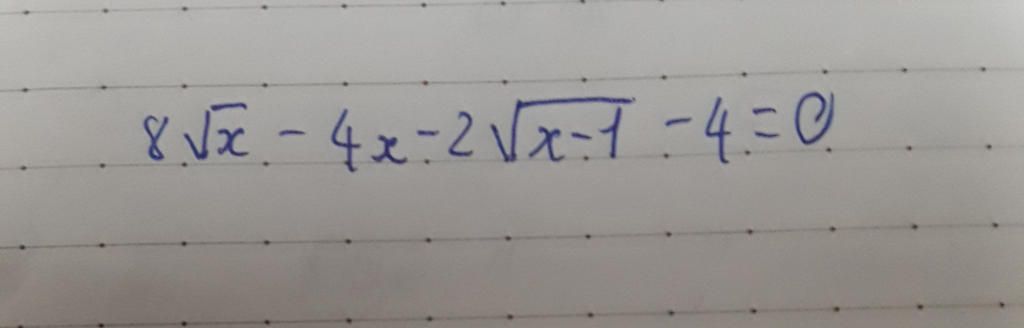 8√x - 4x - 2√(x-1) - 4 = 0